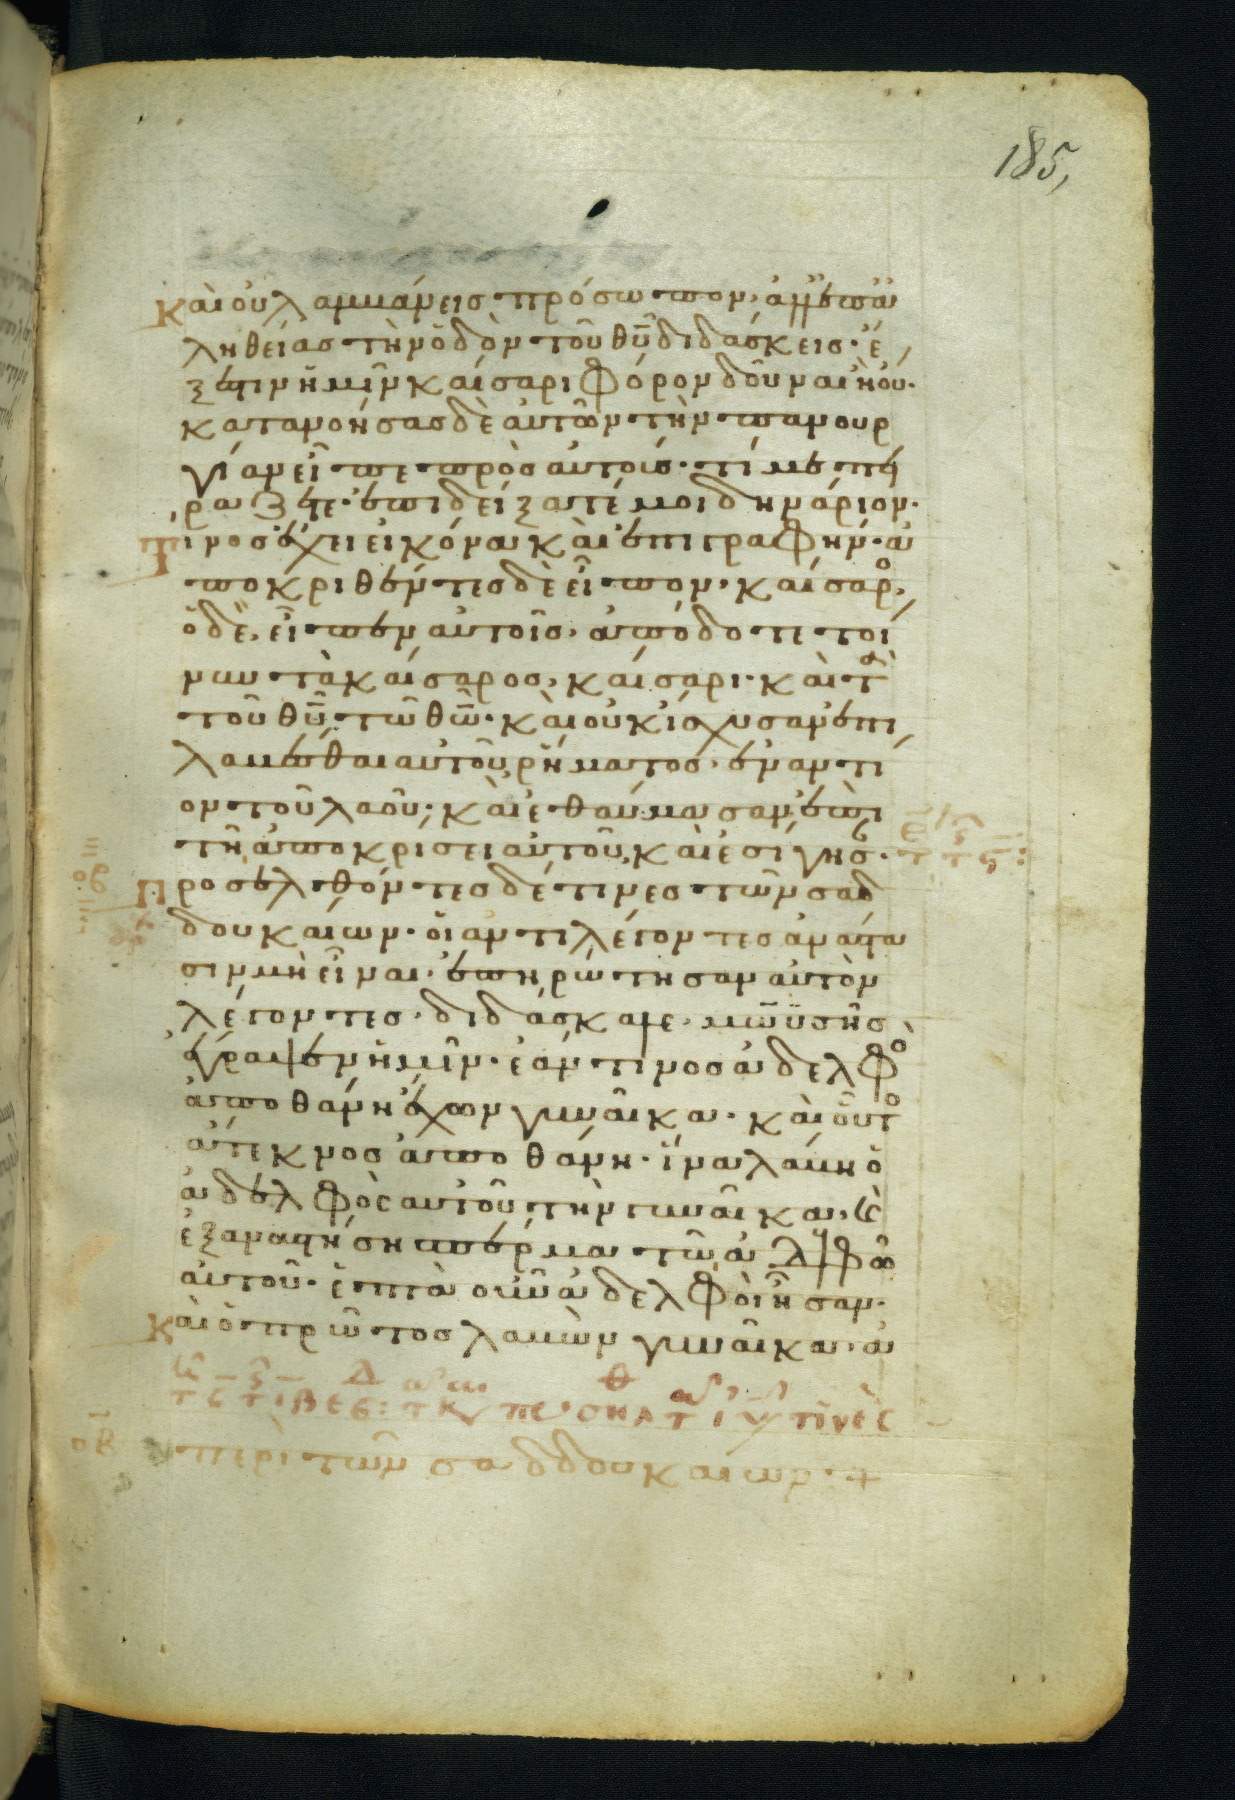 185,
και οὐ λαμβάνεις πρόσωπον, ἀλλ' ἐπ' ἀ
ληθείας τὴν ὁδὸν τοῦ θῦ διδάσκεις· ἔ
ξεστιν ἡμῖν καίσαρι φόρον δοῦναι ἢ οὐ·
κατανοήσας δὲ αὐτῶν τὴν πανουρ
γίαν εἶπε πρὸς αὐτούς· τί με πει
ράζετε· ἐπιδείξατέ μοι δηνάριον·
Τίνος ἔχει εἰκόνα καὶ ἐπιγραφήν· ἀ
ποκριθέντες δὲ εἶπον· καίσαρο,
ὁ δὲ, εἶπεν αὐτοῖς, ἀπόδοτε τοί
νυν τὰ καίσαρος, καίσαρι· καὶ τὰ
τοῦ θῦ τῶ θῶ· καὶ οὐκ ἴσχυσαν ἐπι
λαβέσθαι αὐτοῦ ῥήματος ἐναντί
ον τοῦ λαοῦ· καὶ ἐθαύμασαν ἐπὶ
τῆ ἀποκρίσει αὐτοῦ, καὶ ἐσίγησ·
Προσελθόντες δέ τινες τῶν σαδ
δουκαίων· οἱ ἀντιλέγοντες ἀνάστα
σιν μὴ εἶναι· ἐπηρώτησαν αὐτὸν
λέγοντες· διδάσκαλε, μωϋσῆς
ἔγραψεν ἡμῖν· ἐάν τινος ἀδελφο
ἀποθάνη ἔχων γυναῖκα· καὶ οὗτο
ἄτεκνος ἀποθάνη· ἵνα λάβη ὁ
ἀδελφὸς αὐτοῦ τὴν γυναῖκα, κ
ἐξαναστήση σπέρμα τῶ ἀδελφῶ
αὐτοῦ· ἑπτὰ οὖν ἀδελφοὶ ἦσαν·
Καὶ ὁ πρῶτος λαβὼν γυναῖκα ἀ
οβ περὶ τῶν σαδδουκαίων· +